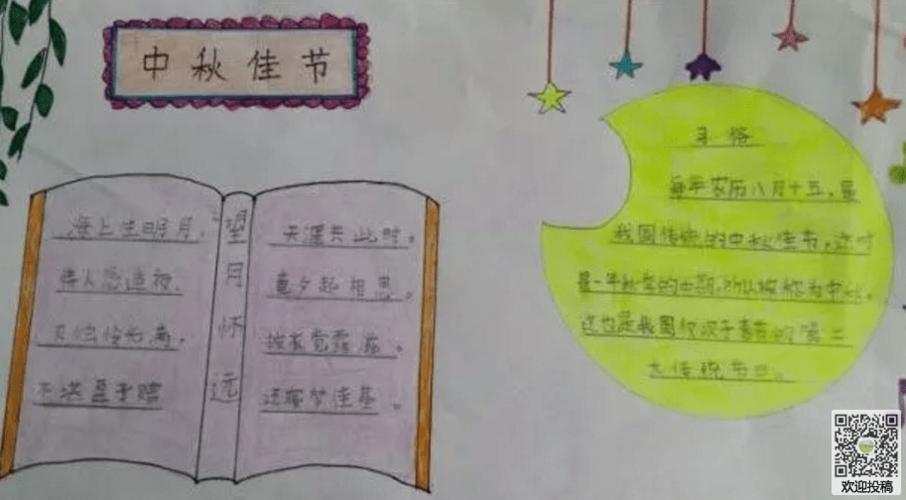 中秋佳节
望月怀远
海上佳明月，
情人怨遥夜，
灭烛怜光满，
不堪盈手赠
天涯共此时。
竟夕起相思。
披衣觉露滋。
还寝梦佳期。
习俗
每年农历八月十五，是
我国传统的中秋佳节，这时
是一年秋季的中期，所以被称为中秋。
这也是我国仅次于春节的第二
大传统节日。
欢迎投稿